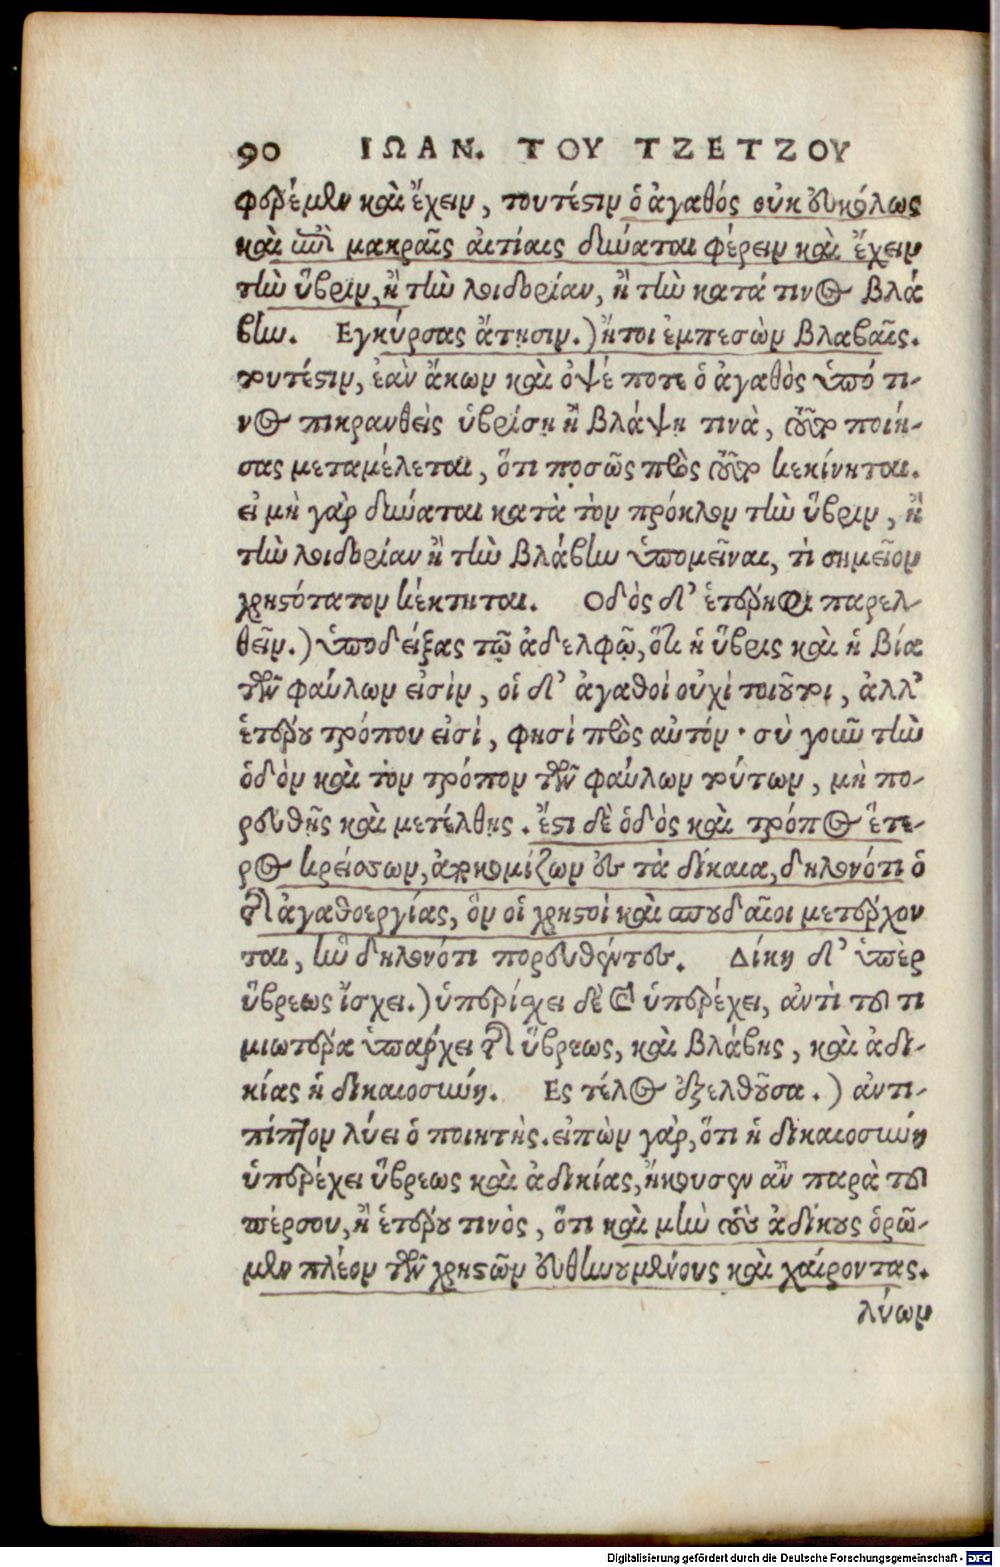 90 ΙΩΑΝ. ΤΟΥ ΤΖΕΤΖΟΥ
φερέμεν καὶ ἔχειν, τουτέστιν ὁ ἀγαθός οὐκ εὐκόλως
καὶ ἐπὶ μακραῖς αἰτίαις δύναται φέρειν καὶ ἔχειν
τὴν ὕβριν, ἢ τὴν λοιδορίαν, ἢ τὴν κατά τινος βλά
βην. Εγκύρσας ἄτησιν.) ἤτοι ἐμπεσὼν βλαβαῖς.
τουτέστιν, ἐὰν ἄκων καὶ ὀψέ ποτε ὁ ἀγαθὸς ὑπό τι-
νος πικρανθεὶς ὑβρίσῃ ἢ βλάψῃ τινὰ, οὗτος ποιή-
σας μεταμέλεται, ὅτι ποσῶς πρὸς οὗτος κεκίνηται.
εἰ μὴ γὰρ δύναται κατὰ τὸν πρόκλον τὴν ὕβριν, ἢ
τὴν λοιδορίαν ἢ τὴν βλάβην ὑπομεῖναι, τὶ σημεῖον
χρηστότατον κέκτηται. Οδὸς δ' ἑτέρηφι παρελ-
θεῖν.) ὑποδείξας τῷ ἀδελφῷ, ὅτι ἡ ὕβρις καὶ ἡ βία
τῶν φαύλων εἰσὶν, οἱ δ' ἀγαθοὶ οὐχὶ τοιοῦτοι, ἀλλ'
ἑτέρου τρόπου εἰσὶ, φησὶ πρὸς αὐτόν· σὺ γοῦν τὴν
ὁδὸν καὶ τὸν τρόπον τῶν φαύλων τούτων, μὴ πο-
ρευθῇς καὶ μετέλθῃς. ἔστι δὲ ὁδὸς καὶ τρόπος ἕτε-
ρος κρείσσων, ἀποκομίζων ἐς τὰ δίκαια, δηλονότι ὁ
τῆς ἀγαθοεργίας, ὃν οἱ χρηστοὶ καὶ σπουδαῖοι μετέρχον
ται, ἣν δηλονότι πορευθέντες. Δίκη δ' ὑπὲρ
ὕβρεως ἴσχει.) ὑπερίσχει δὲ καὶ ὑπερέχει, ἀντὶ τοῦ τι
μιωτέρα ὑπάρχει τῆς ὕβρεως, καὶ βλάβης, καὶ ἀδι-
κίας ἡ δικαιοσύνη. Ες τέλος ἐξελθοῦσα.) ἀντι-
πίπτον λύει ὁ ποιητὴς. εἰπὼν γὰρ, ὅτι ἡ δικαιοσύνη
ὑπερέχει ὕβρεως καὶ ἀδικίας, ἤκουσεν ἂν παρὰ τοῦ
πέρσου, ἢ ἑτέρου τινὸς, ὅτι καὶ μὴν τοὺς ἀδίκους ὁρῶ-
μεν πλέον τῶν χρηστῶν εὐθηνουμένους καὶ χαίροντας.
λύων
Digitalisierung gefördert durch die Deutsche Forschungsgemeinschaft - DFG